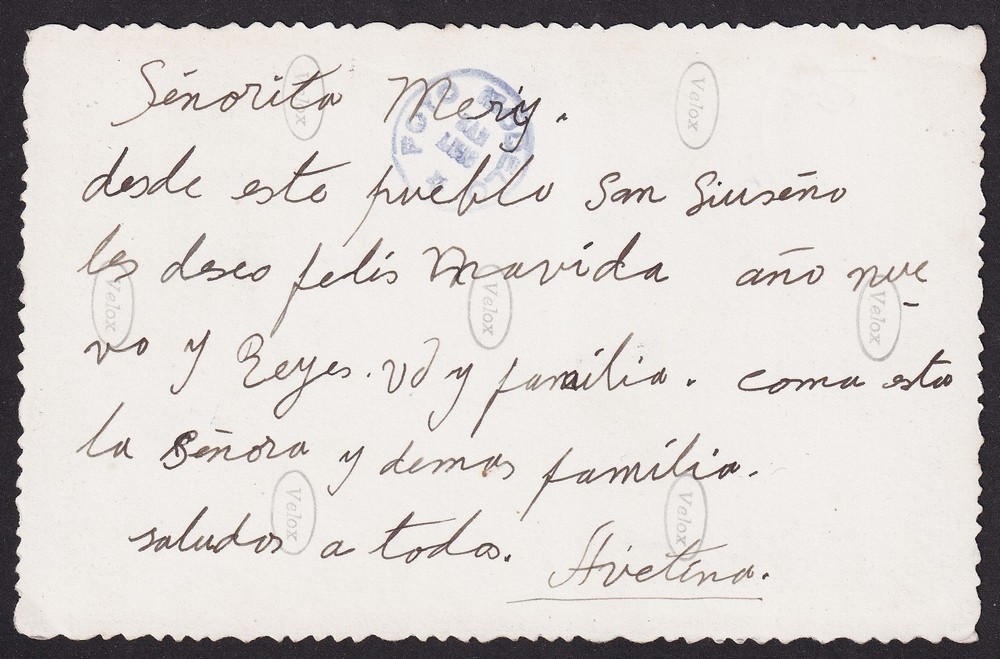 Señorita Mery.
desde esto pueblo San Giuseño
les deseo felis navida año nue
vo y Reyes. Vd y familia. coma esta
la Señora y demas familia.
saludos a todos.
Avetina.
FOTO MODELO
SAN
Velox
Velox
Velox
Velox
Velox
Velox
Velox